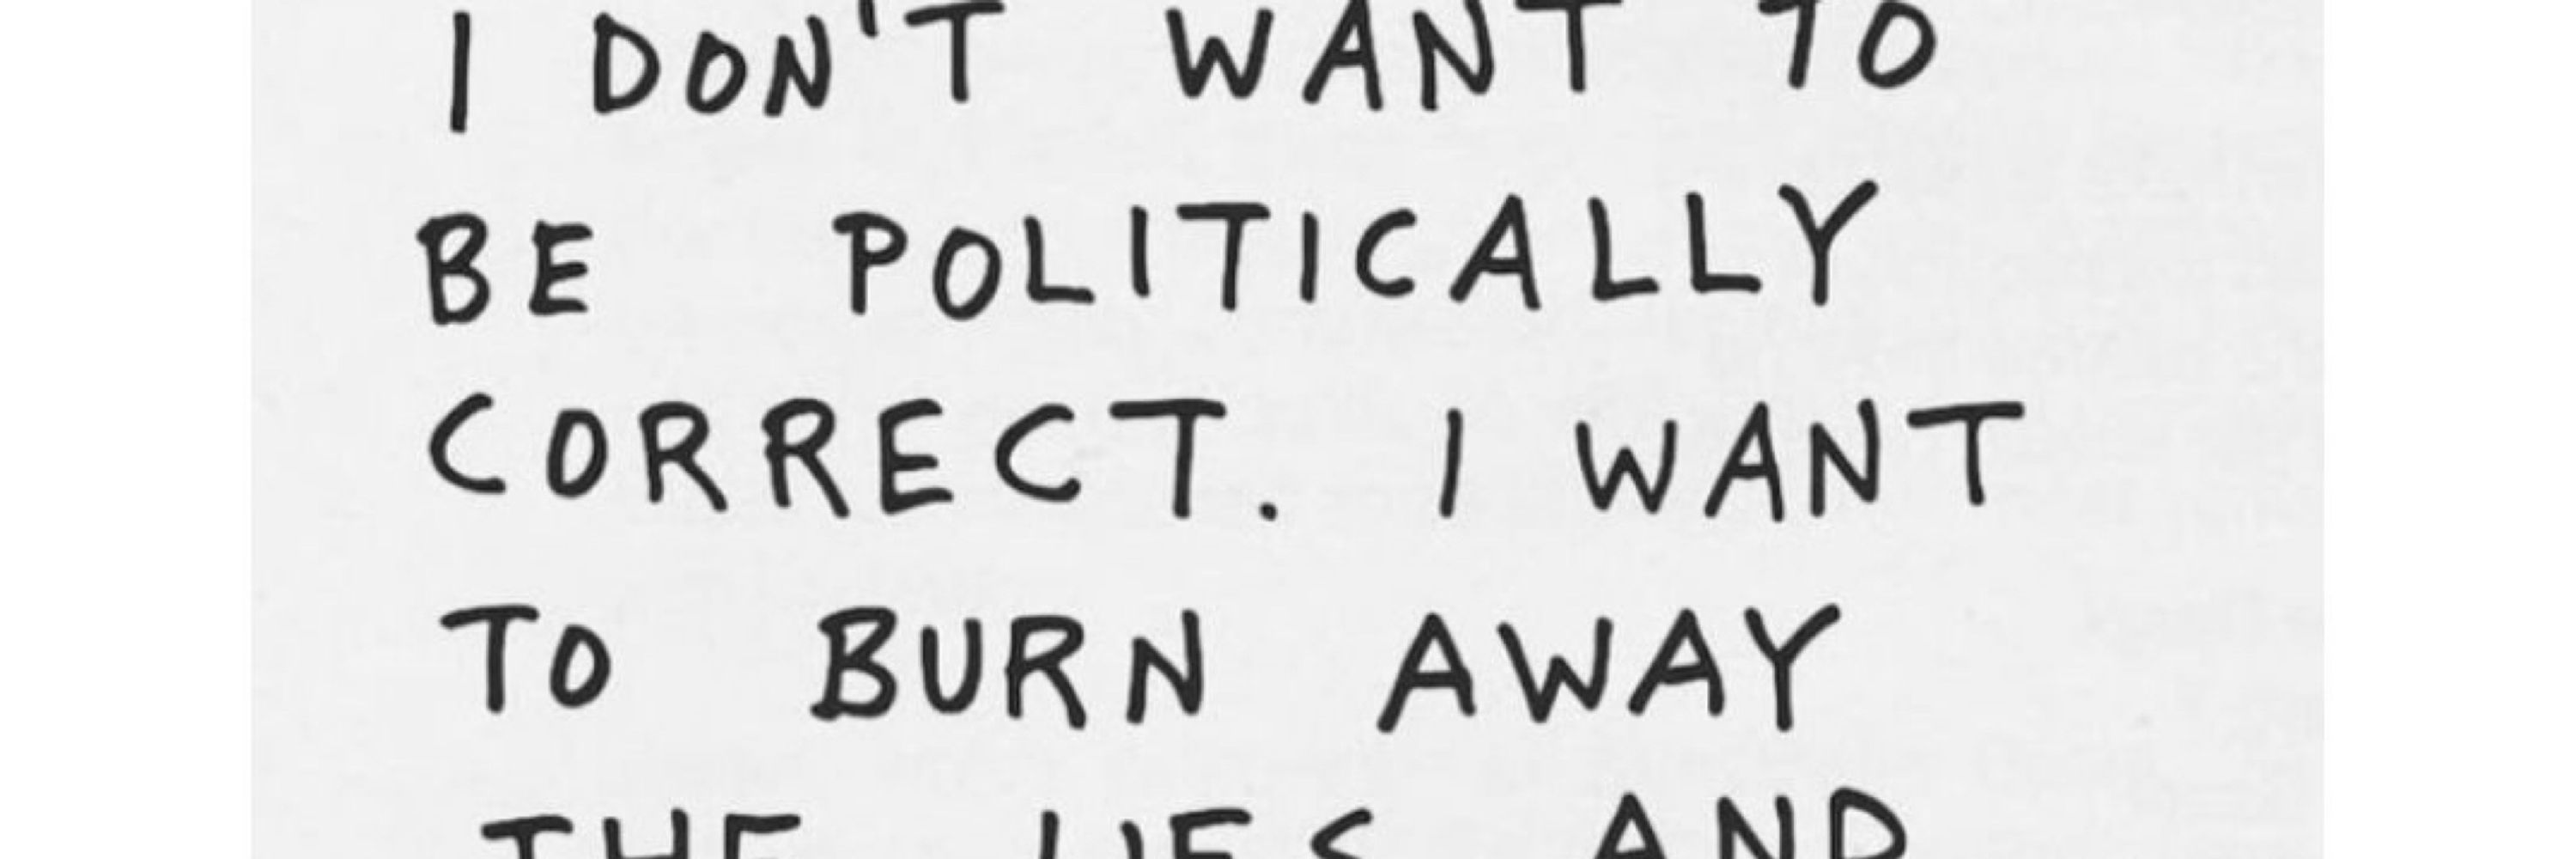 I DON'T WANT TO
BE POLITICALLY
CORRECT. I WANT
TO BURN AWAY
THE LIES AND